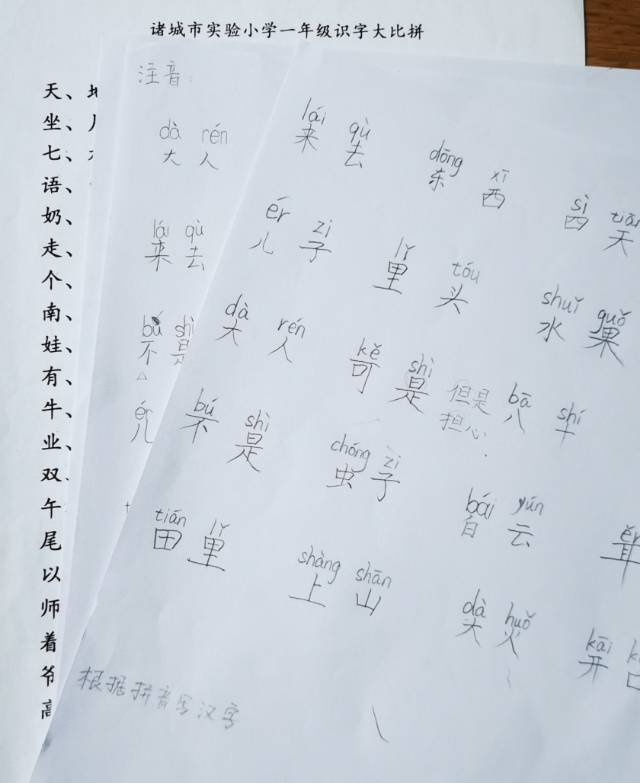 诸城市实验小学一年级识字大比拼
天、
坐、
七、
语、
奶、
走、
个、
南、
娃、
有、
牛、
业、
双
午
尾
以
师
着
爷
高
注音
dà rén
大人
lái qù
来去
bú shì
不是
ér
儿
lái qù dōng xī sì tiān
来去 东西 西天
ér zi lǐ tóu shuǐ guǒ
儿子 里头 水果
dà rén kě shì bā shí
大人 可是 但是 八十
担心
bú shì chóng zi bái yún ěr
不是 虫子 白云 耳
tián lǐ shàng shān dà huǒ kāi
田里 上山 大火 开口
根据拼音写汉字